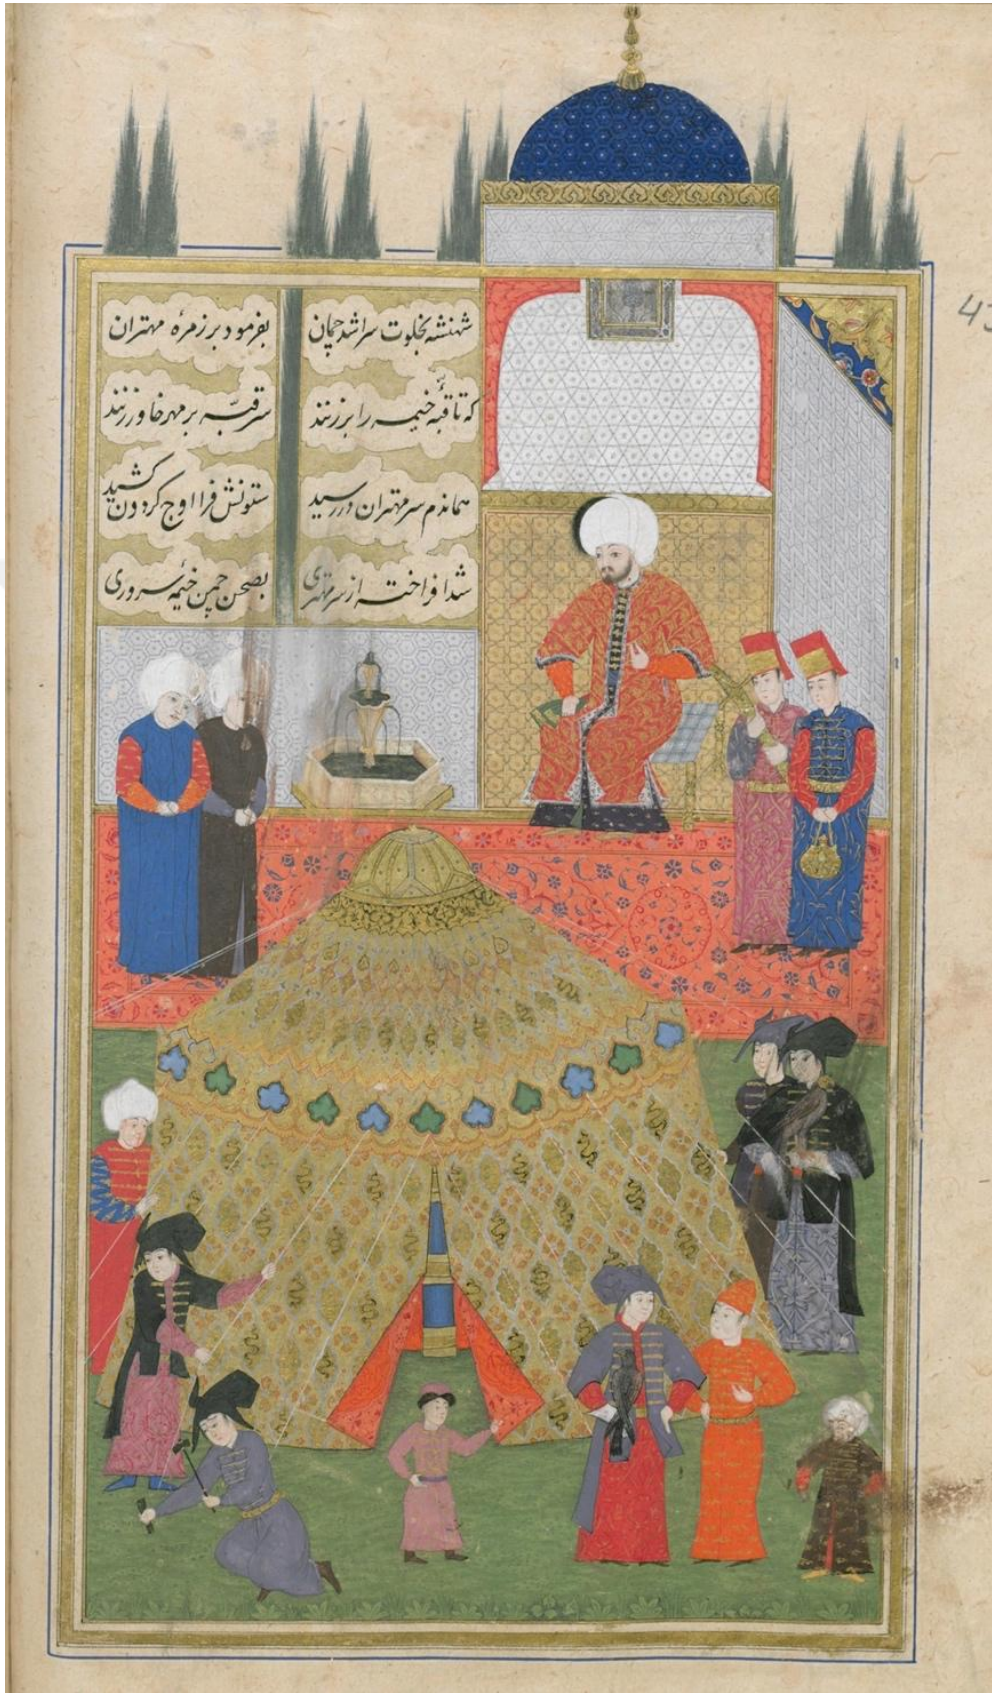 شهنشه بخلوت سرا شد چمان بفرمود بر زمرهٔ مهتران
که تا قبّهٔ خیمه را برزنند سر قبّه بر مهر خاور زنند
هماندم سر مهتران در رسید ستونش فرا اوج کردون کشید
شد افراخته از سر مهتری بصحن چمن خیمهٔ سروری